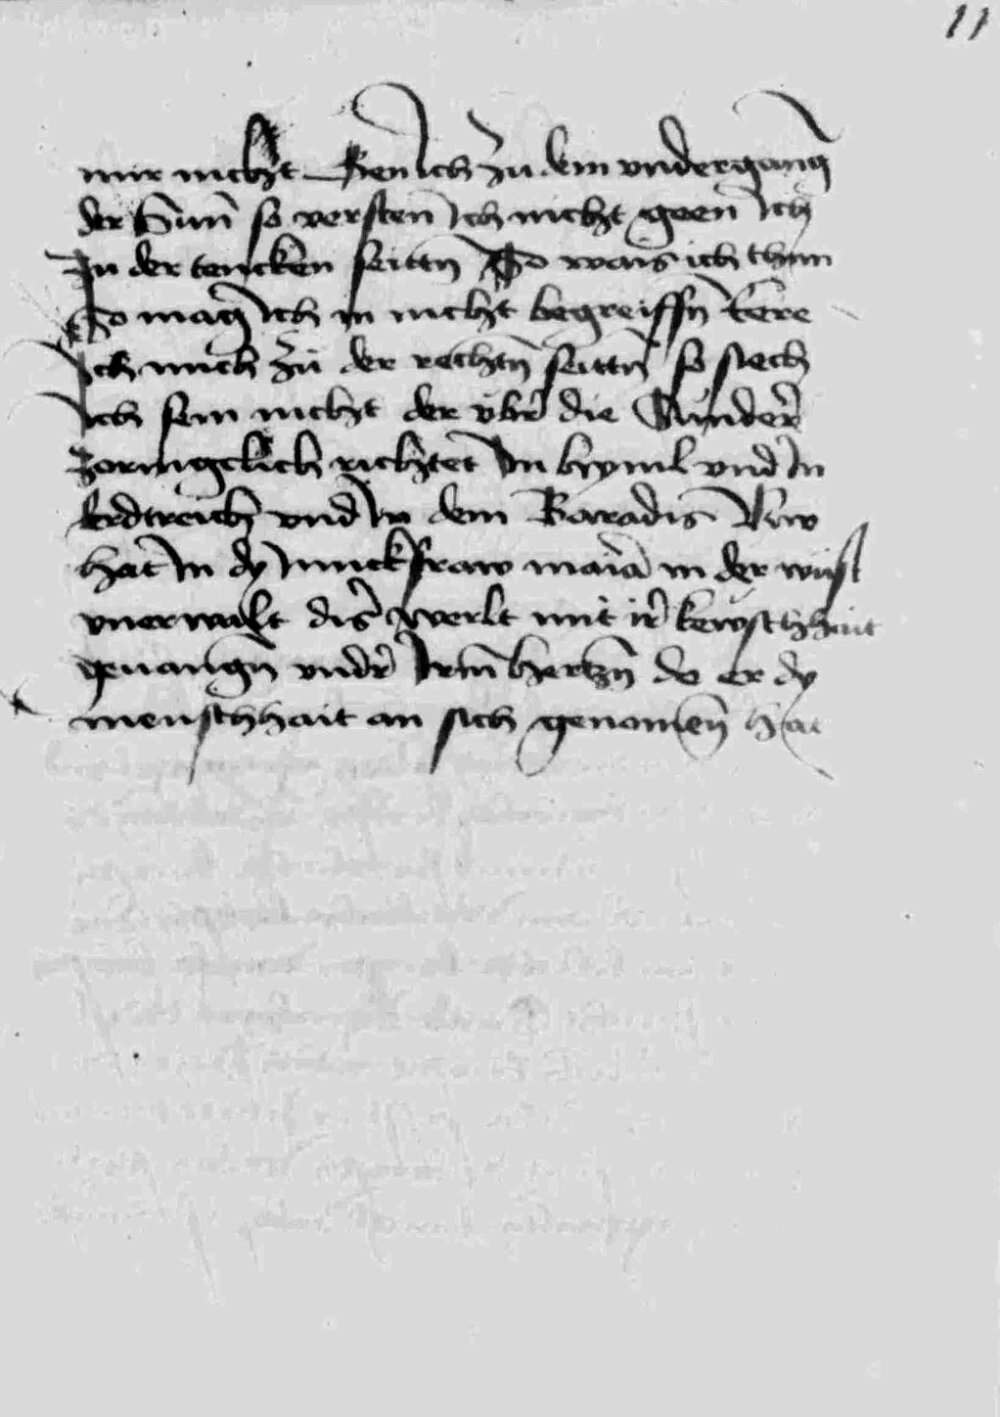 11
mir nicht Gen ich zu dem vndergang
der Sun̄ so versten̄ ich nicht geen ich
In der tencken seittn̄ So wais ich thun
So mag ich in nicht begreiffn̄ kere
Ich mich zu der rechtn̄ seittn̄ so siech
ich sein nicht der vbr̄ die Sunder̄
zorngclich richtet In hyml vnd In
erdtreich vnd In dem Baradis Nw
hat In dy Junckfraw maria in der wüst
vnerwult dis̄ werlt mit ir̄ kewschhait
geuangn̄ vndr̄ Irm̄ hertzn̄ do er dy
menschhait an sich genomen̄ hat